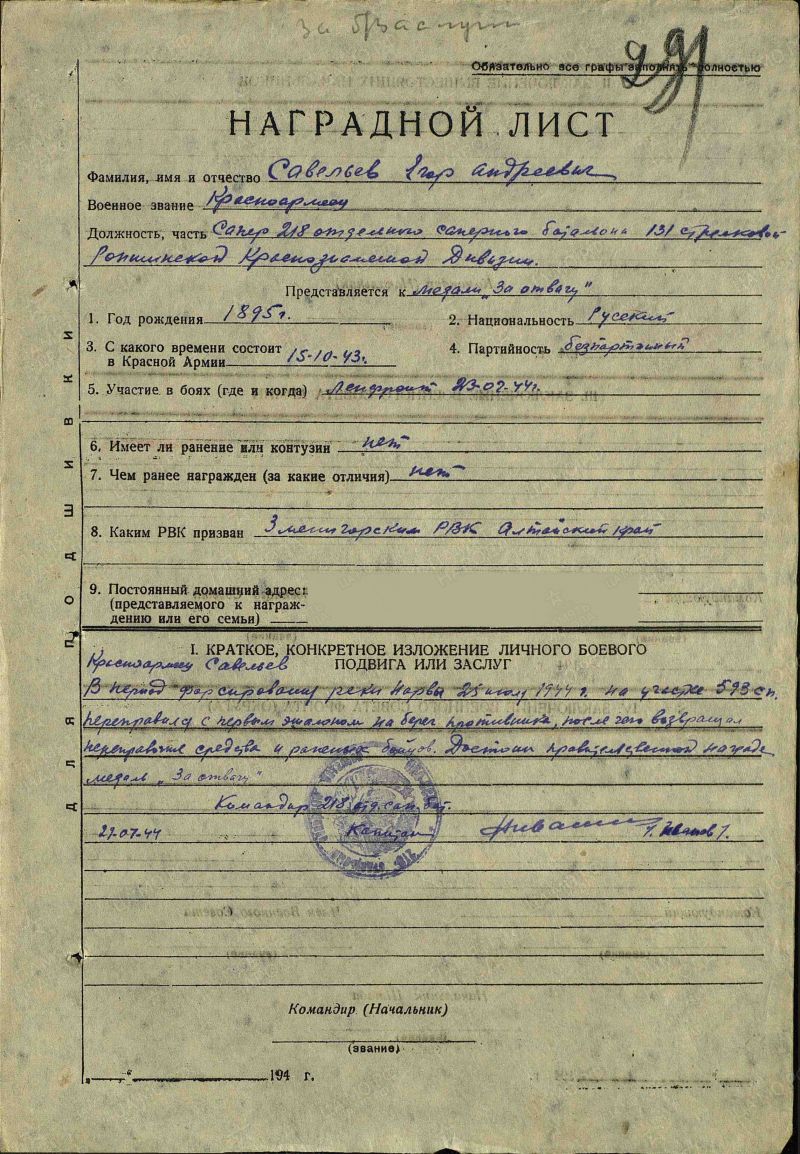 за б/заслуги
Обязательно все графы заполнять полностью
НАГРАДНОЙ ЛИСТ
Фамилия, имя и отчество Савельев Егор Андреевич
Военное звание Красноармеец
Должность, часть Сапер 218 отдельного саперного батальона 131 стрелковой
Ропшинской Краснознаменной Дивизии.
Представляется к медали „За отвагу"
1. Год рождения 1895 г. 2. Национальность Русский
3. С какого времени состоит 4. Партийность безпартийный
в Красной Армии 15-10-43 г.
5. Участие в боях (где и когда) Ленфронт 23-02-44 г.
6. Имеет ли ранение или контузии нет
7. Чем ранее награжден (за какие отличия) нет
8. Каким РВК призван Змеиногорским РВК Алтайский край
9. Постоянный домашний адрес:
(представляемого к награж-
дению или его семьи)
I. КРАТКОЕ, КОНКРЕТНОЕ ИЗЛОЖЕНИЕ ЛИЧНОГО БОЕВОГО
ПОДВИГА ИЛИ ЗАСЛУГ
Красноармеец Савельев
В период форсирования реки Нарва 25 июля 1944 г. на участке 593 сп.
переправился с первым эшалоном на берег противника, после чего возвращал
переправочные средства и раненых бойцов. Достоин правительственной награде
медаль „За отвагу"
Командир 218 отд. сап. бат.
27-07-44 Капитан /Иванов/.
Командир (Начальник)
(звание)
194 г.
ДЛЯ ПОДШИВКИ